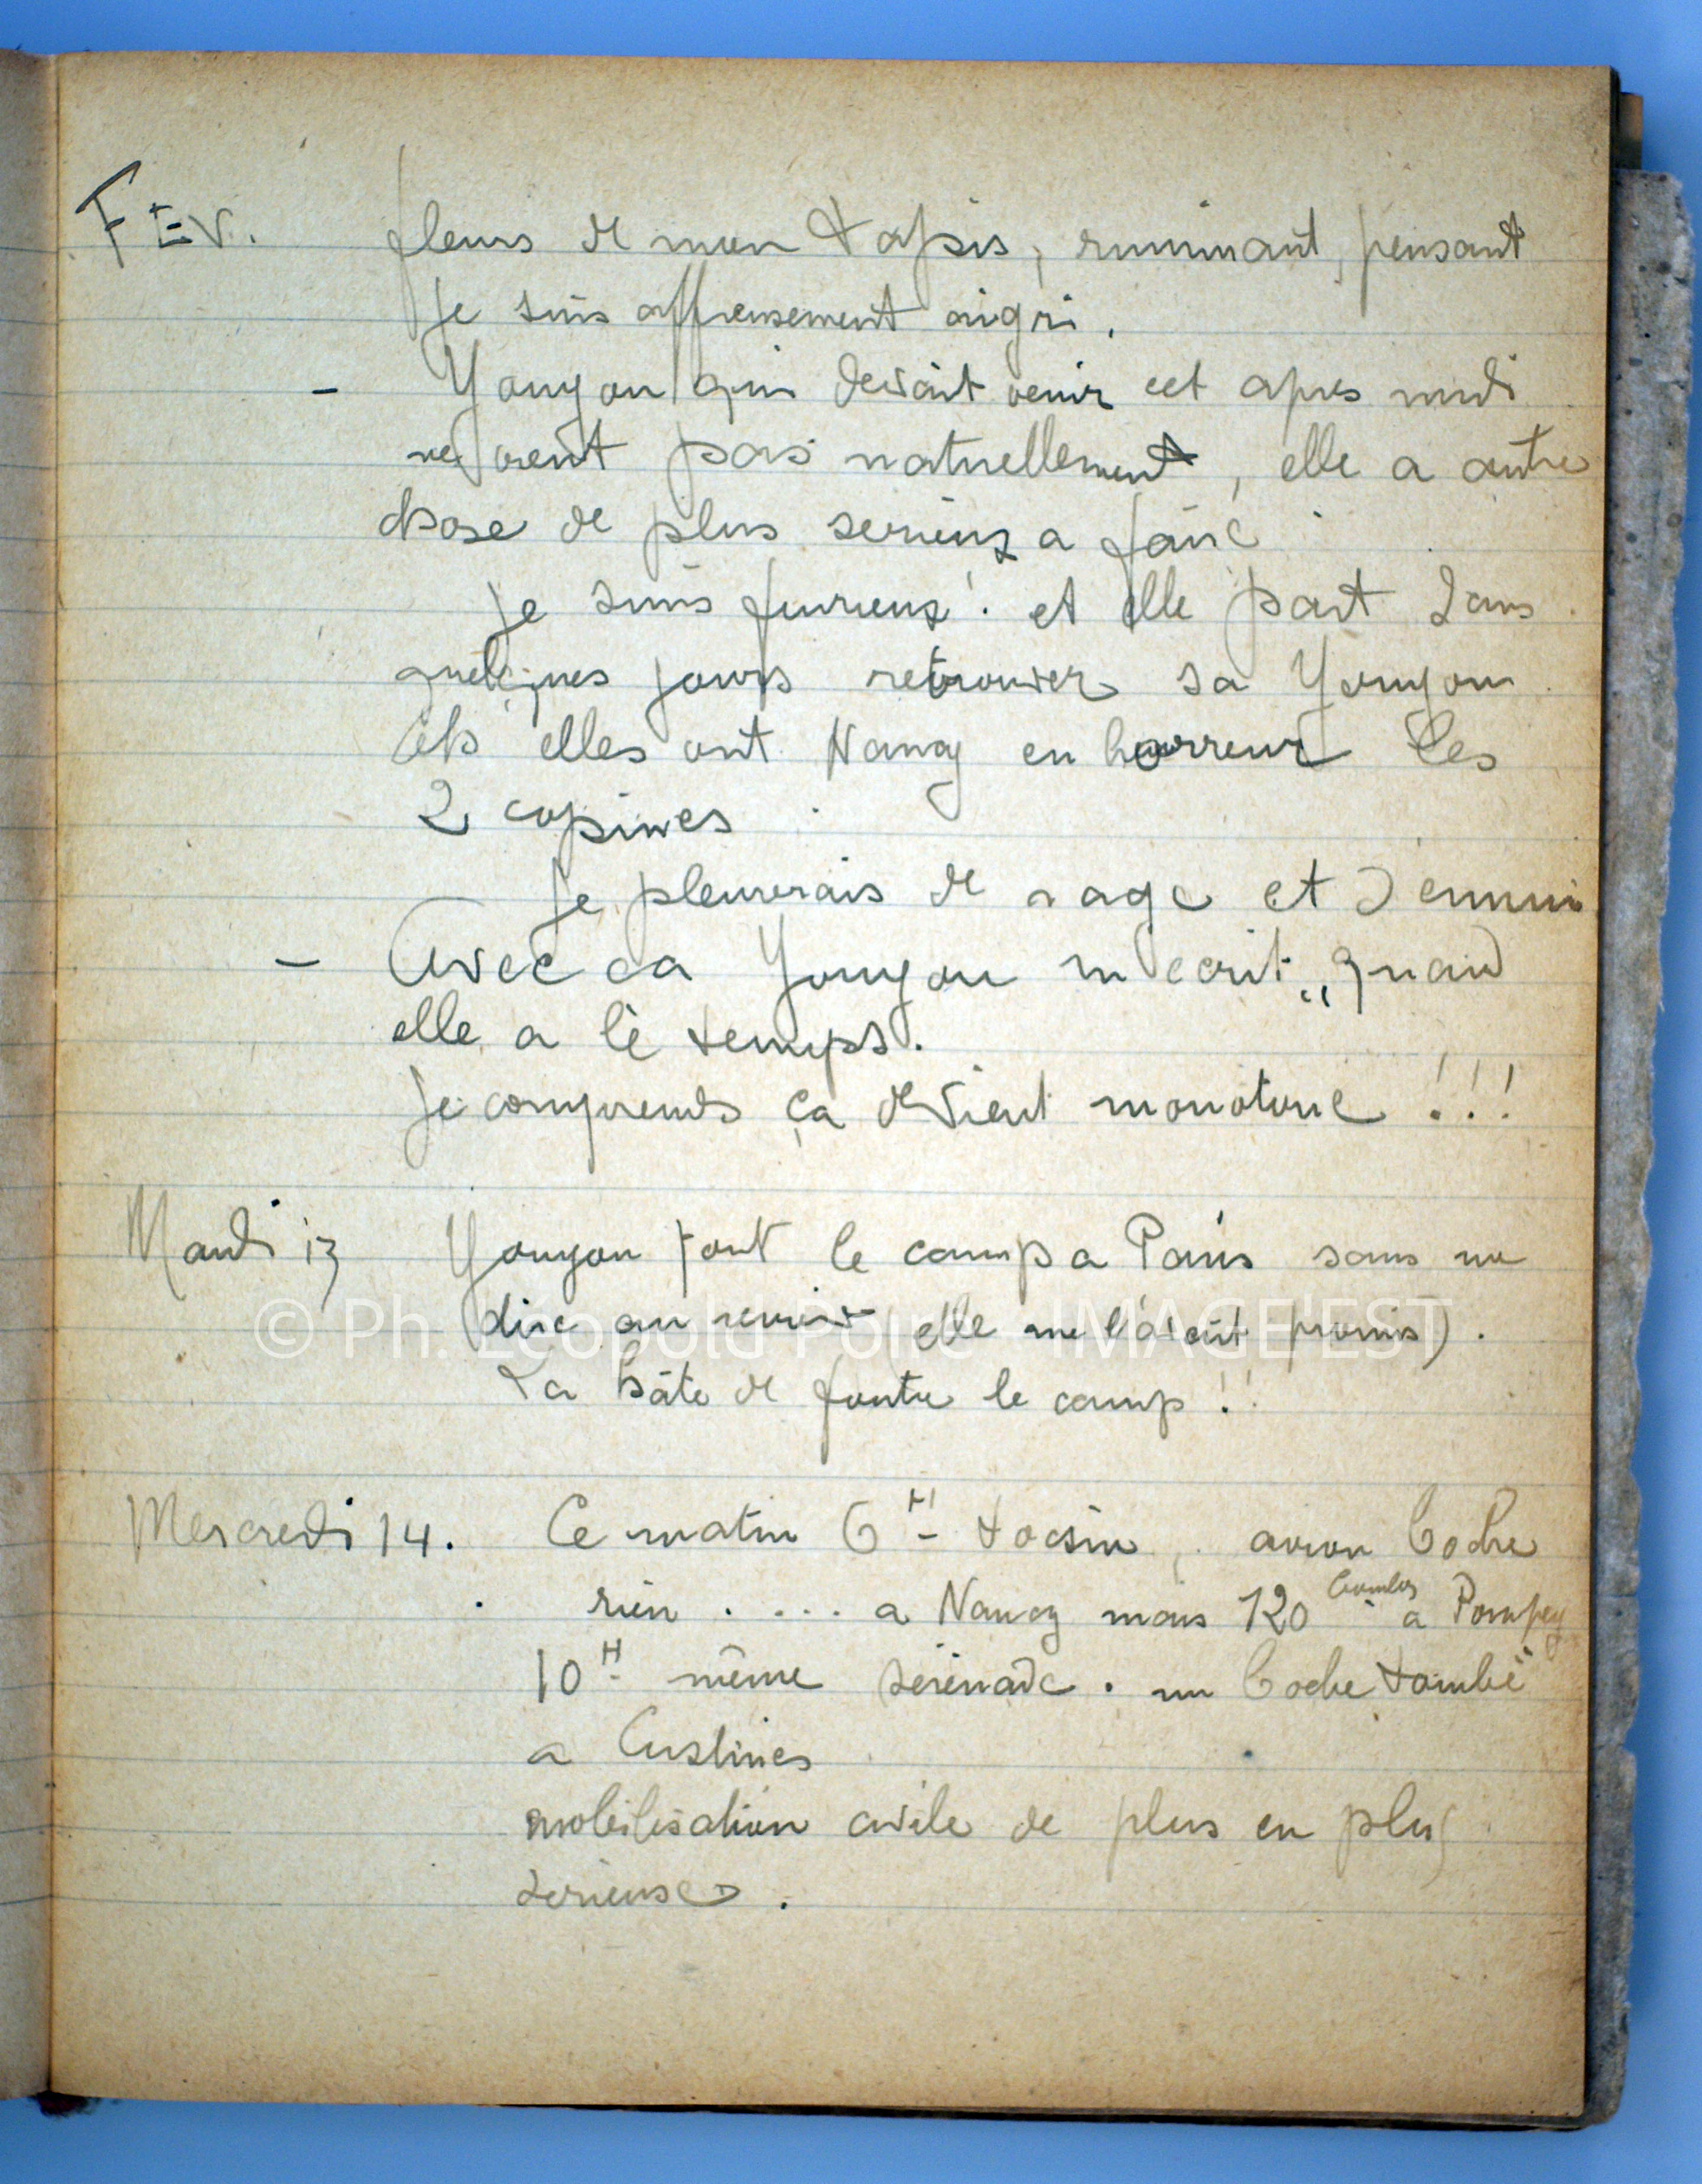 FÉV. fleurs de mon tapis, ruminant, pensant
je suis affreusement aigri.
- Youyou qui devait venir cet apres midi
ne vient pas naturellement, elle a autre
chose de plus serieux a faire
je suis furieux! et elle part dans
quelques jours retrouver sa Youyou
Ah elles ont Nancy en horreur les
2 copines
je pleurerais de rage et d'ennui
- Avec ca Youyou m'ecrit „quand
elle a le temps.
je comprends ça devient monotone !!!
Mardi 13 Youyou fout le camp a Paris sans me
dire au revoir (elle me l'avait promis).
La hâte de foutre le camp !!
Mercredi 14. Ce matin 6H- tocsin, avion boche
rien .... a Nancy mais 120 bombes a Pompey
10H- même sérénade. un boche tombé
a Custines
mobilisation civile de plus en plus
serieuse.
© Ph. Leopold Poiré - IMAGE'EST